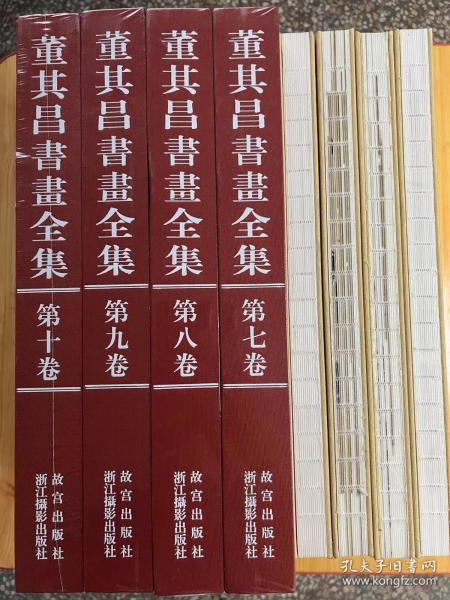 董其昌書畫全集
第十卷
故宫出版社
浙江攝影出版社
董其昌書畫全集
第九卷
故宫出版社
浙江攝影出版社
董其昌書畫全集
第八卷
故宫出版社
浙江攝影出版社
董其昌書畫全集
第七卷
故宫出版社
浙江攝影出版社
孔夫子旧書网
www.kongfz.com